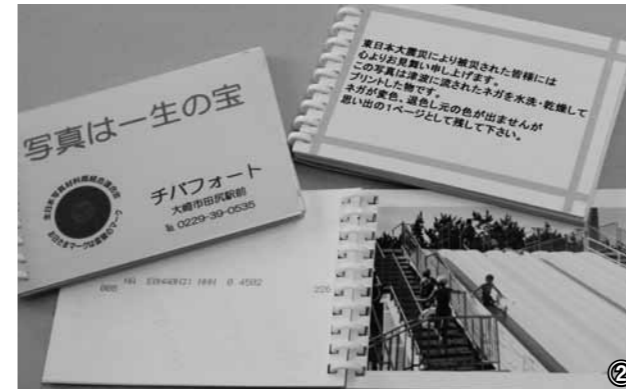 写真は一生の宝
全日本写真材料商組合連合会
お日さまマークは信頼のマーク
チバフォート
大崎市田尻駅前
℡ 0229-39-0535
東日本大震災により被災された皆様には
心よりお見舞い申し上げます。
この写真は津波に流されたネガを水洗・乾燥して
プリントした物です。
ネガが変色、退色し元の色が出ませんが
思い出の1ページとして残して下さい。
②